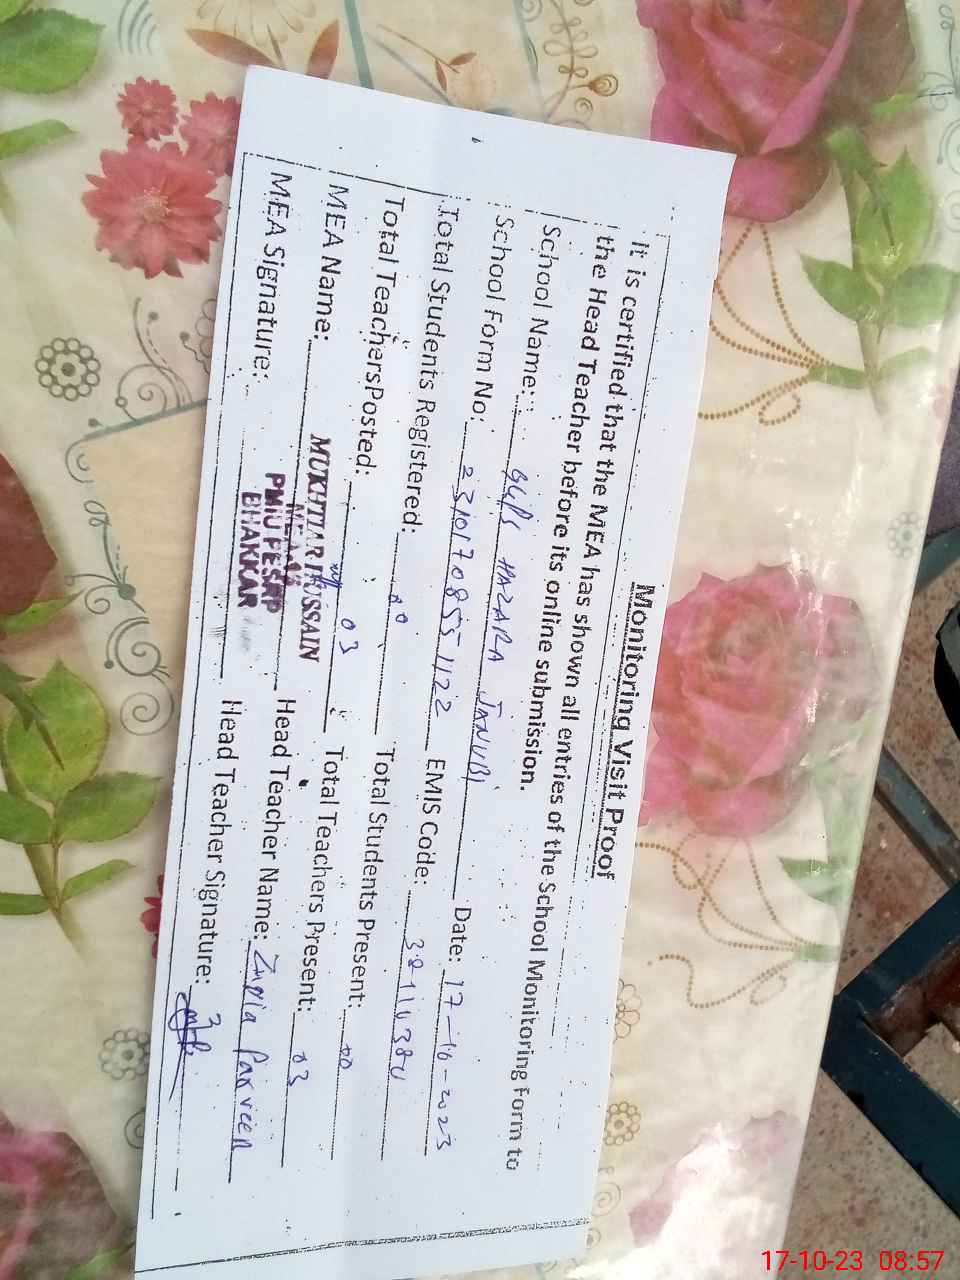 Monitoring Visit Proof
It is certified that the MEA has shown all entries of the School Monitoring Form to
the Head Teacher before its online submission.
School Name: GGPS HAZARA JANUBI Date: 17-10-2023
School Form No: 23101708551122 EMIS Code:
Total Students Registered: Total Students Present: 00
Total Teachers Posted: 03 Total Teachers Present: 03
MEA Name: MUKHTIAR HUSSAIN Head Teacher Name: Parveen
MEA
MEA Signature: PMIU PESRP Head Teacher Signature:
BHAKKAR
17-10-23 08:57